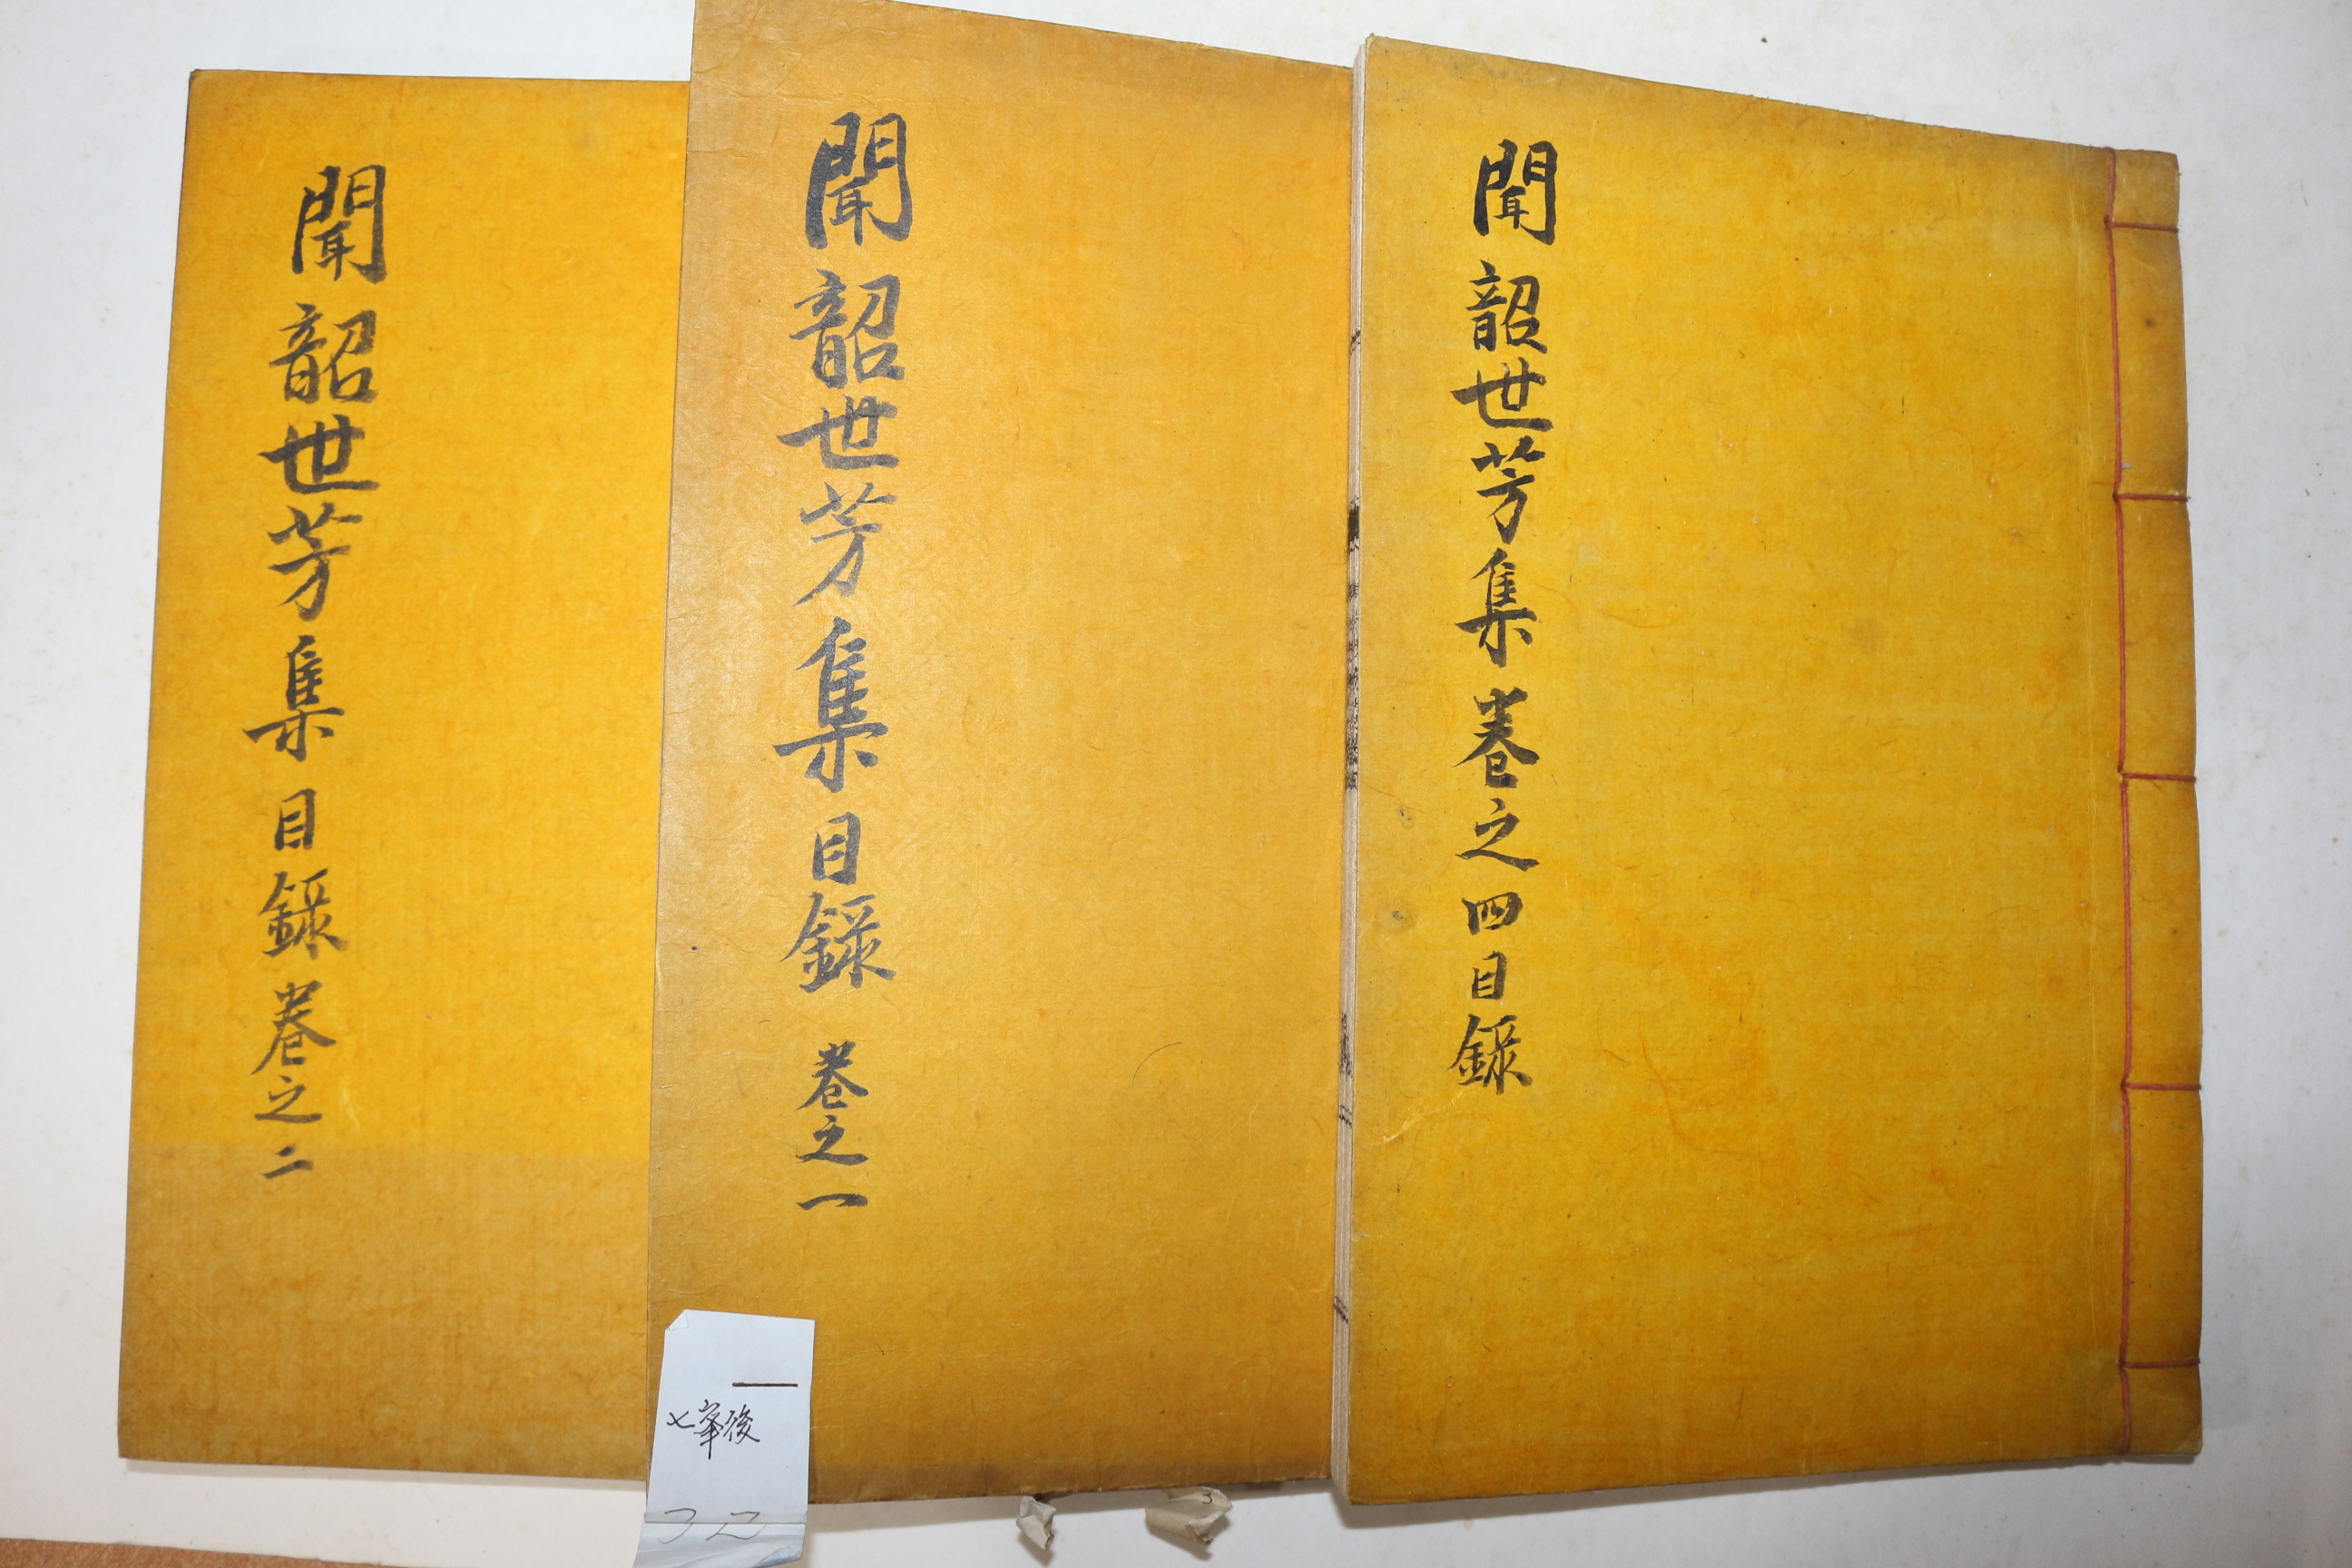 聞韶世芳集卷之四目錄
聞韶世芳集目錄 卷之一
聞韶世芳集目錄卷之二
七峯後
3